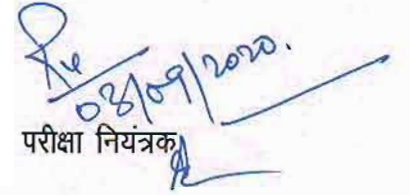 03/09/2020.
परीक्षा नियंत्रक